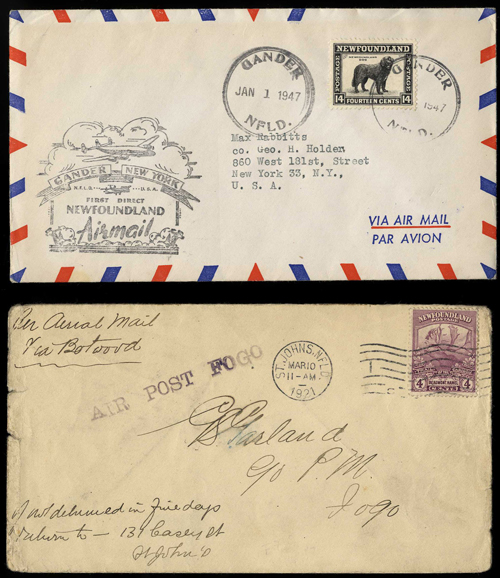 GANDER
JAN 1 1947
NFLD.
NEWFOUNDLAND
POSTAGE
POSTAGE
14
FOURTEEN CENTS
14
GANDER
1947
NFLD.
Max Rabbitts
co. Geo. H. Holden
860 West 181st, Street
New York 33, N.Y.,
U. S. A.
GANDER NEW YORK
NFLD. U.S.A.
FIRST DIRECT
NEWFOUNDLAND
Airmail
VIA AIR MAIL
PAR AVION
Per Aerial Mail
Via Botwood
AIR POST FOGO
ST. JOHN'S, NFLD.
MAR 10
11-AM
1921
NEWFOUNDLAND
POSTAGE
4
BEAUMONT HAMEL
4
CENTS
Garland
c/o P.M.
Fogo
If not delivered in five days
return to - 131 Casey St
St John's